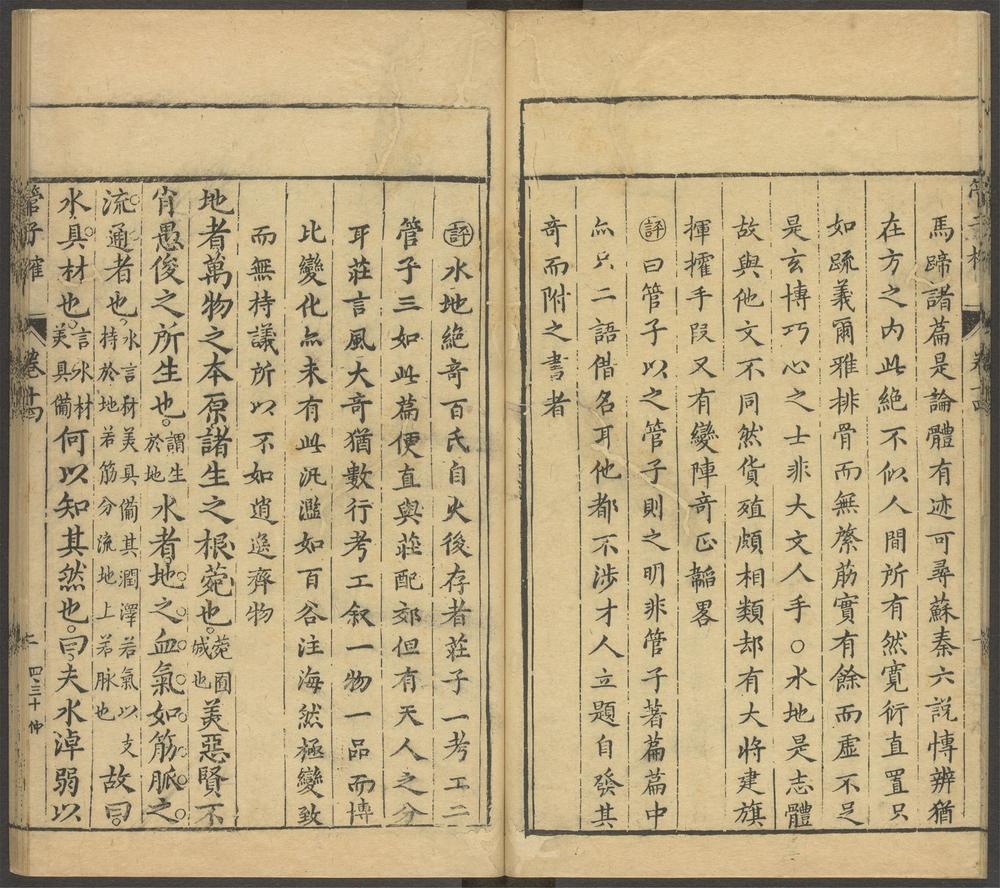 馬蹄諸篇是論體有迹可尋蘇秦六説博辨猶
在方之内此絶不似人間所有然寛衍直置只
如䟽義爾雅排骨而無縈筋實有餘而虚不足
是玄博巧心之士非大文人手○水地是志體
故與他文不同然貨殖頗相類却有大將建旗
揮攉手段又有變陣竒正韜畧
評曰管子以之管子則之明非管子著篇篇中
亦只二語借名耳他都不渉才人立題自發其
竒而附之書者
評水地絶竒百氏自火後存者莊子一考工二
管子三如此篇便直與莊配郊但有天人之分
耳莊言風大竒猶數行考工叙一物一品而博
比變化亦未有此汎濫如百谷注海然極變致
而無持議所以不如逍遥齊物
地者萬物之本原諸生之根菀也菀囿城也美惡賢不
肖愚俊之所生也謂生於地水者地之血氣如筋脈之
流通者也水言材美具備其潤澤若氣以支持於地若筋分流地上若脉也故曰
水具材也言水材美具備何以知其然也曰夫水淖弱以
管子榷
卷十四
七
四三十
仲